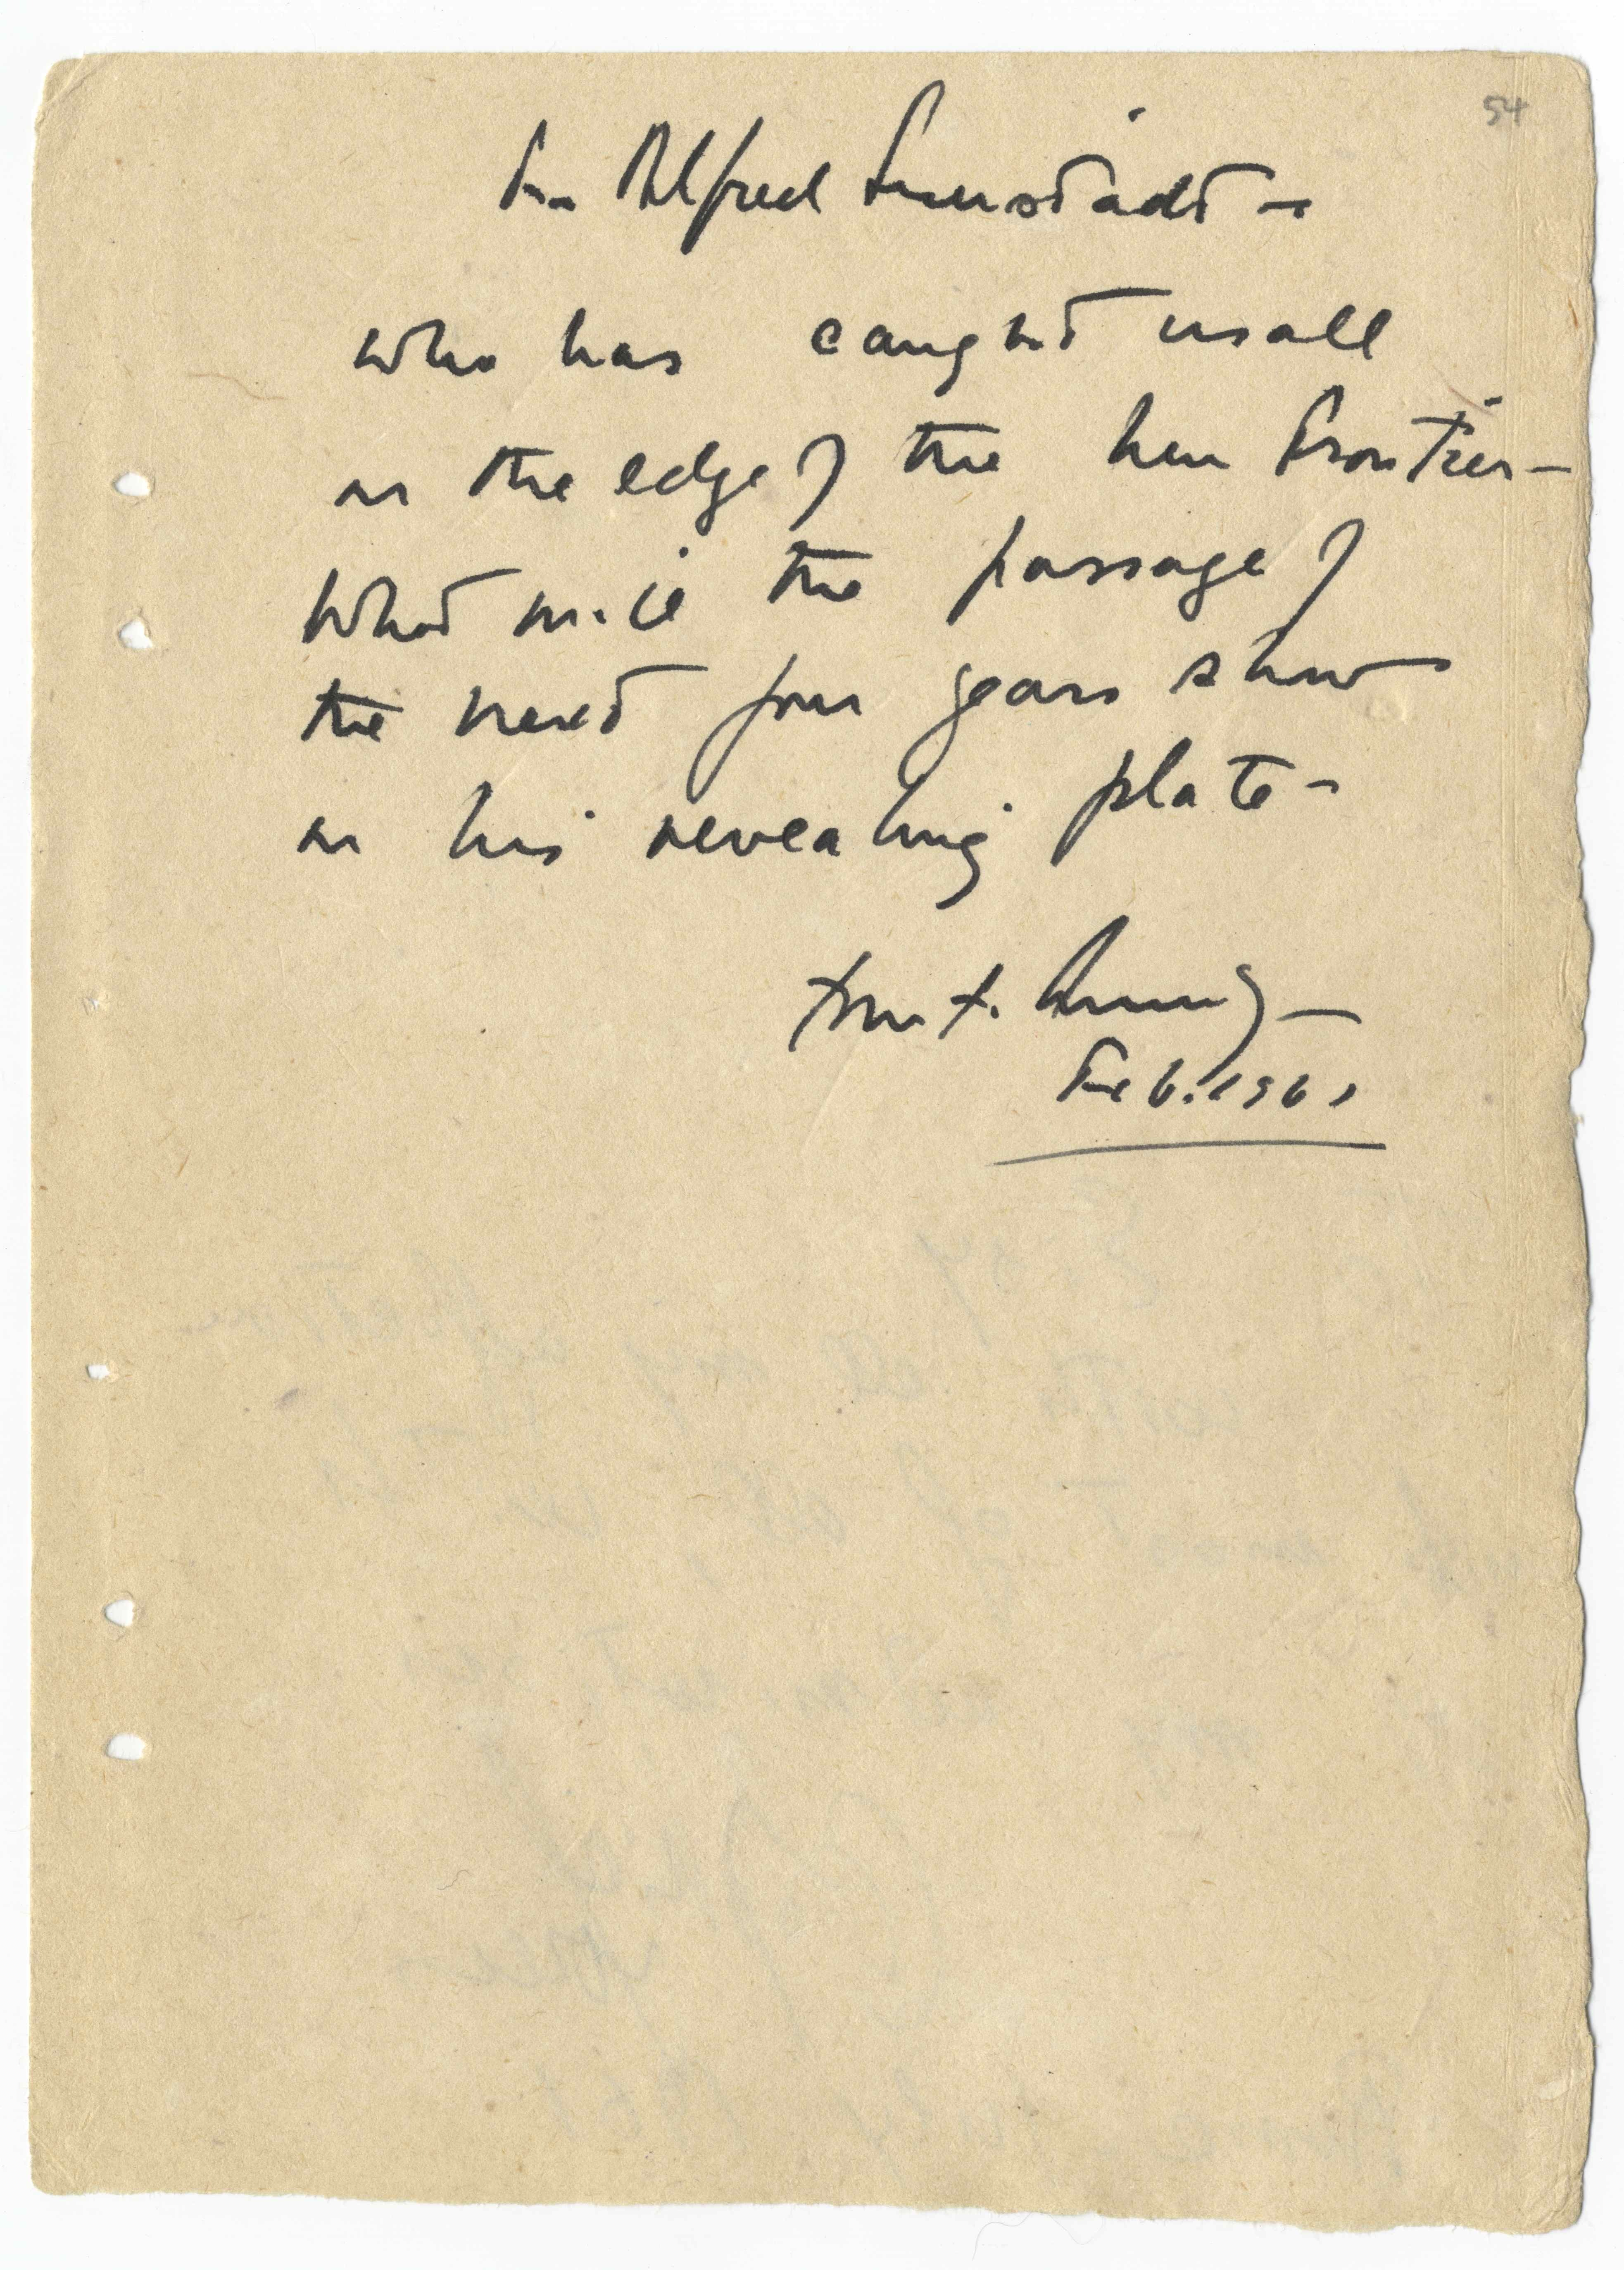 54
For Alfred Eisenstadt –
who has caught us all
on the edge of the New Frontier –
What will the passage of
the next four years show
on his revealing plate –
John F. Kennedy –
Feb. 1961